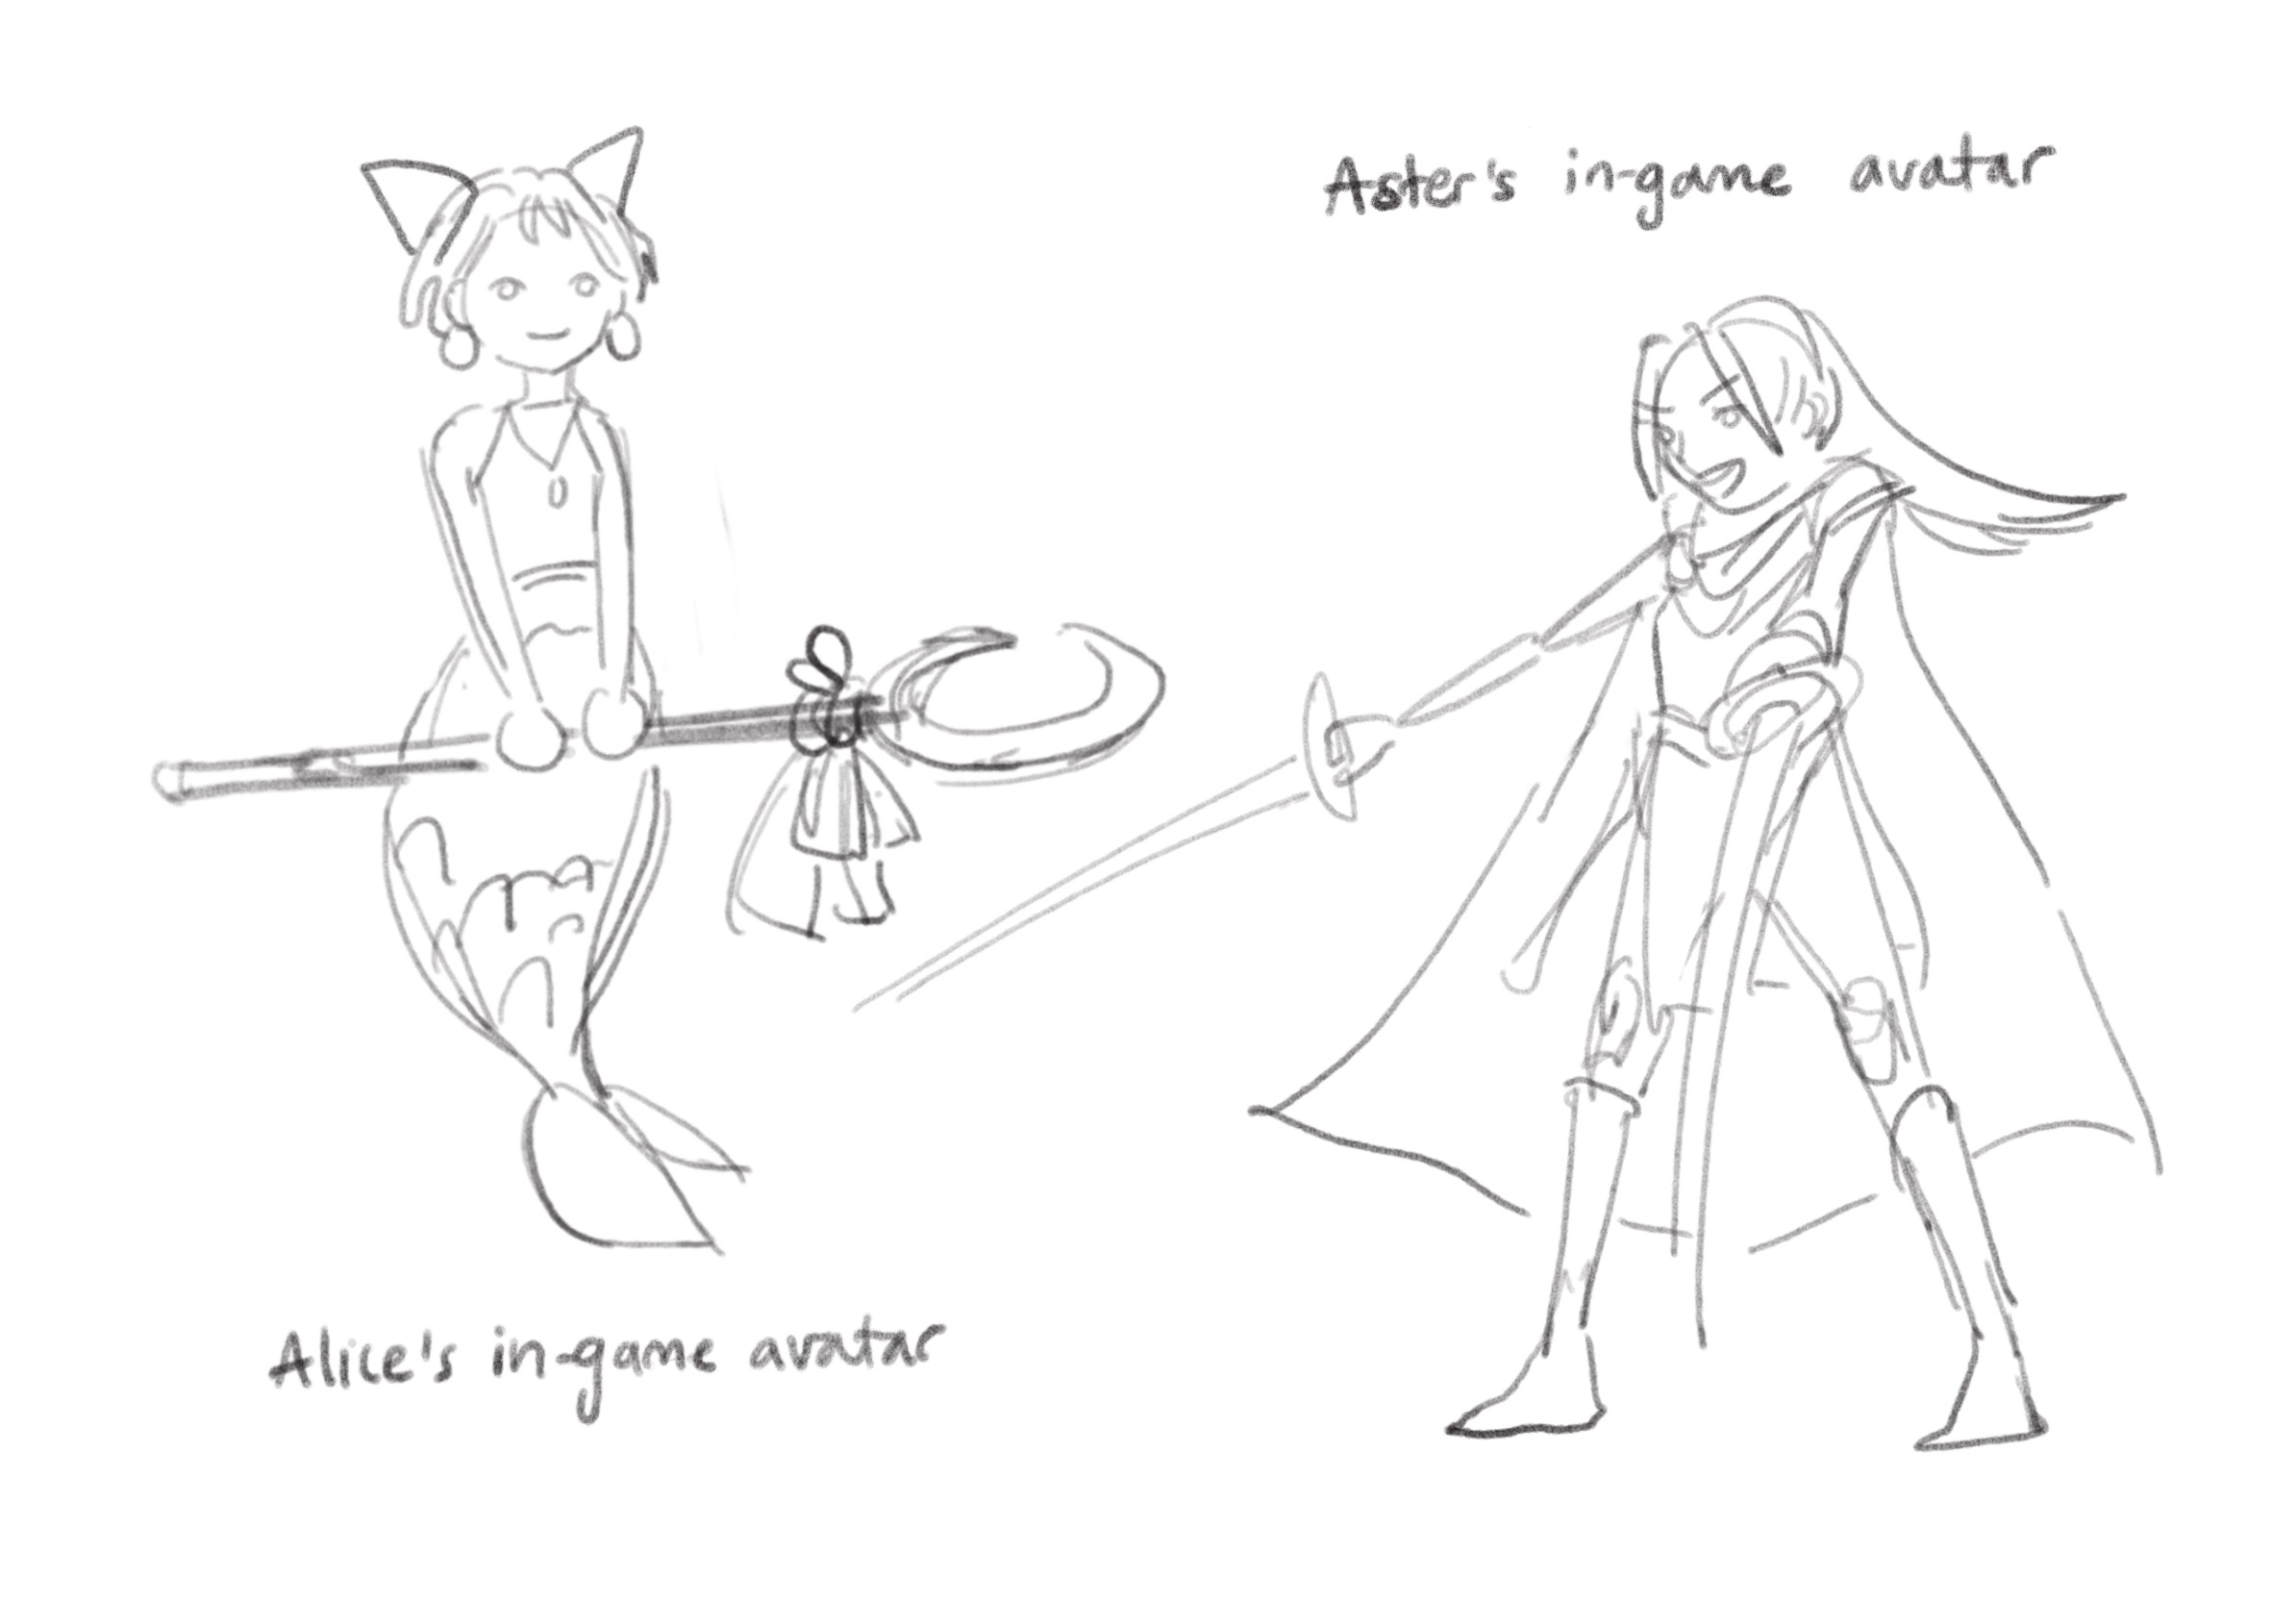 Aster's in-game avatar
Alice's in-game avatar